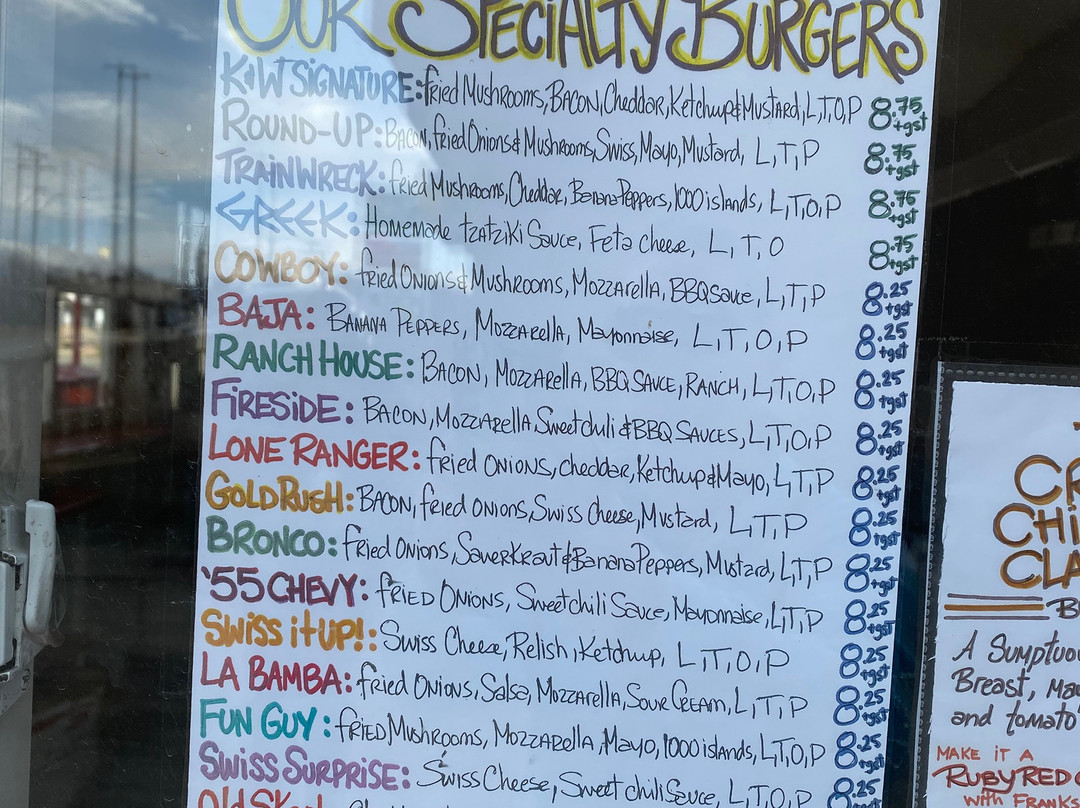 OUR SPECIALTY BURGERS
K&W SIGNATURE: fried Mushrooms, BACON, Cheddar, Ketchup & Mustard, L,T,O,P 8.75 +gst
ROUND-UP: Bacon, fried Onions & Mushrooms, Swiss, Mayo, Mustard, L,T,P 8.75 +gst
TRAINWRECK: fried Mushrooms, Cheddar, Banana Peppers, 1000 islands, L,T,O,P 8.75 +gst
GREEK: Homemade tzatziki Sauce, Feta cheese, L, T, O 8.75 +gst
COWBOY: fried Onions & Mushrooms, Mozzarella, BBQ sauce, L,T,P 8.25 +gst
BAJA: BANANA PEPPERS, Mozzarella, Mayonnaise, L,T,O,P 8.25 +gst
RANCH HOUSE: BACON, MOZZARella, BBQ SAUCE, RANCH, L,T,O,P 8.25 +gst
FIRESIDE: BACON, Mozzarella, Sweet chili & BBQ SAUCES, L,T,O,P 8.25 +gst
LONE RANGER: fried ONIONS, cheddar, Ketchup & Mayo, L,T,P 8.25 +gst
GOLD RUSH: BACON, fried ONIONS, Swiss Cheese, Mustard, L,T,P 8.25 +gst
BRONCO: fried Onions, Sauerkraut & Banana Peppers, Mustard, L,T,P 8.25 +gst
'55 CHEVY: fRiED ONIONS, Sweet chili Sauce, Mayonnaise, L,T,P 8.25 +gst
SWISS it UP!: Swiss Cheese, Relish, Ketchup, L,T,O,P 8.25 +gst
LA BAMBA: fried Onions, Salsa, Mozzarella, Sour Cream, L,T,P 8.25 +gst
FUN GUY: fRiED Mushrooms, Mozzarella, Mayo, 1000 islands, L,T,O,P 8.25 +gst
SWiSS SURPRISE: Swiss Cheese, Sweet chili Sauce, L,T,O,P 8.25
Old
CR
CHI
CLA
A Sumptuou
Breast, Ma
and tomato
MAKE IT A
RUBY RED
with FRANKS